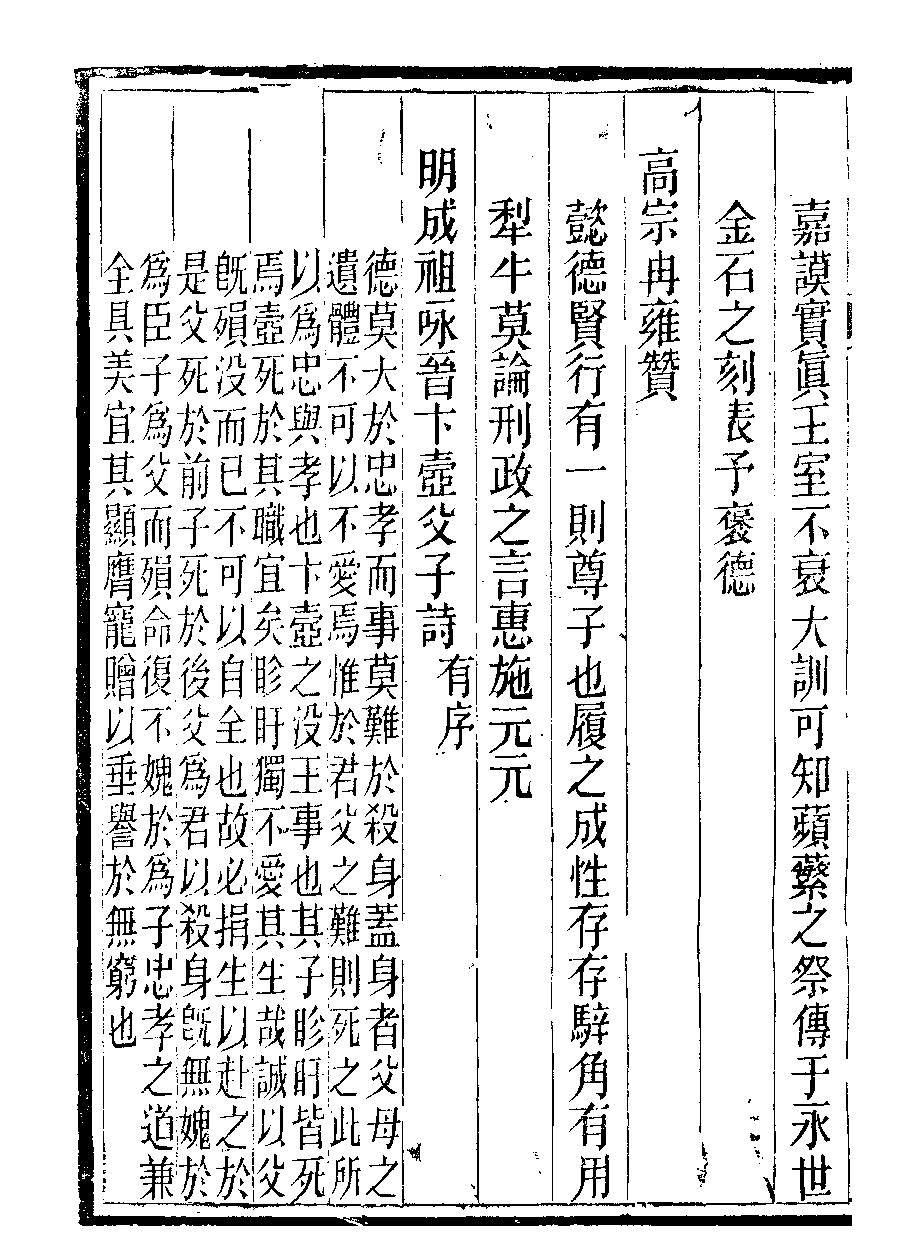 嘉謨實眞王室不衰大訓可知蘋蘩之祭傳于永世
金石之刻表予褒德
高宗冉雍贊
懿德賢行有一則尊子也履之成性存存騂角有用
犁牛莫論刑政之言惠施元元
明成祖咏晉卞壼父子詩有序
德莫大於忠孝而事莫難於殺身蓋身者父母之
遺體不可以不愛焉惟於君父之難則死之此所
以爲忠與孝也卞壼之没王事也其子眕盱皆死
焉壼死於其職宜矣眕盱獨不愛其生哉誠以父
旣殞没而已不可以自全也故必捐生以赴之於
是父死於前子死於後父爲君以殺身旣無媿於
爲臣子爲父而殞命復不媿於爲子忠孝之道兼
全具美宜其顯膺寵贈以垂譽於無窮也